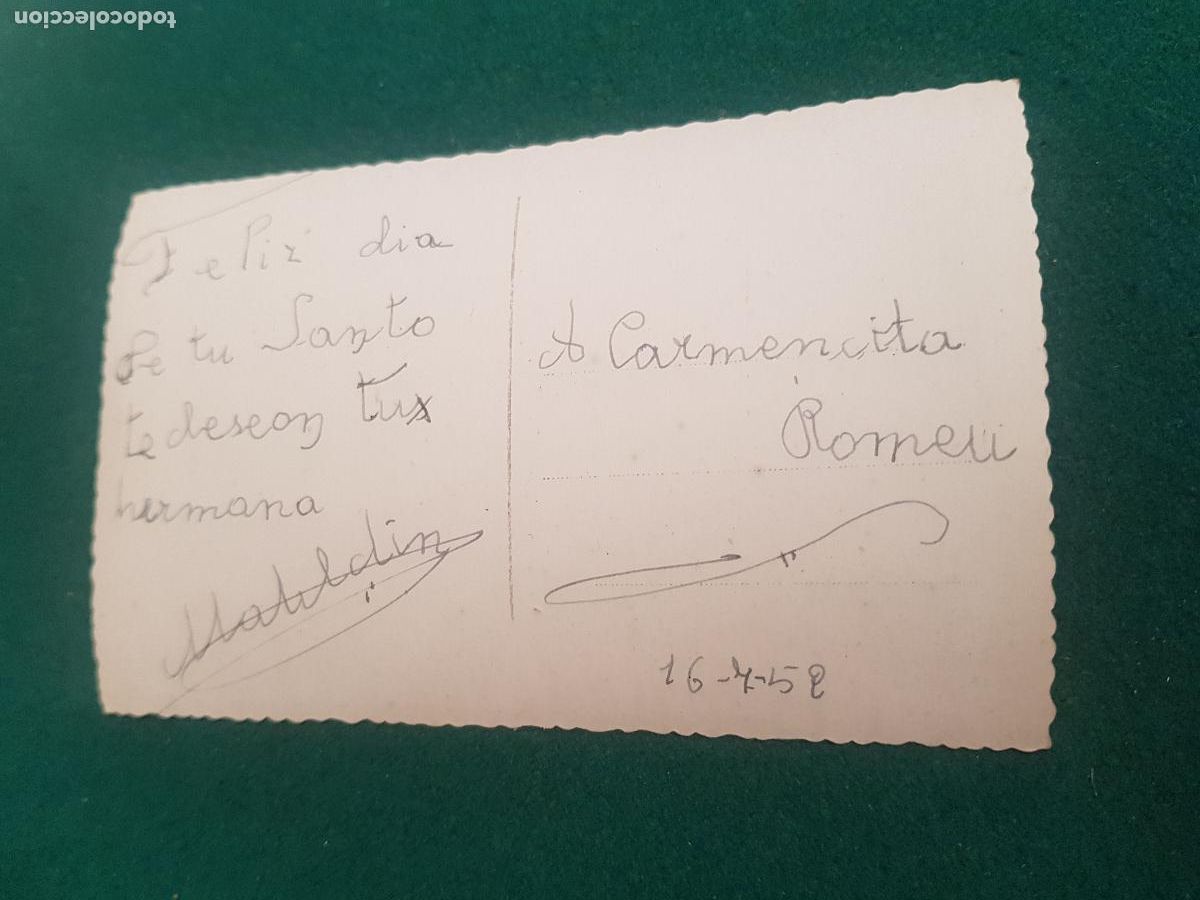 todocoleccion
Feliz dia
de tu Santo
te deseon tus
hermana
A Carmencita
Romeu
16-7-52